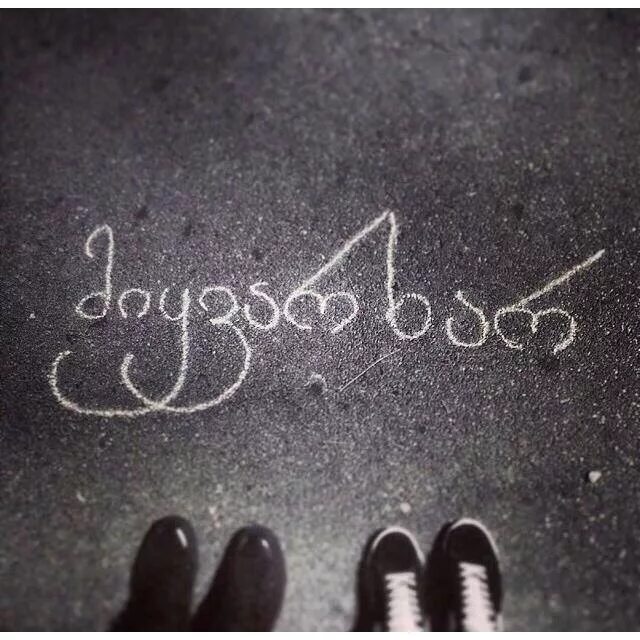 მიყვარხარ